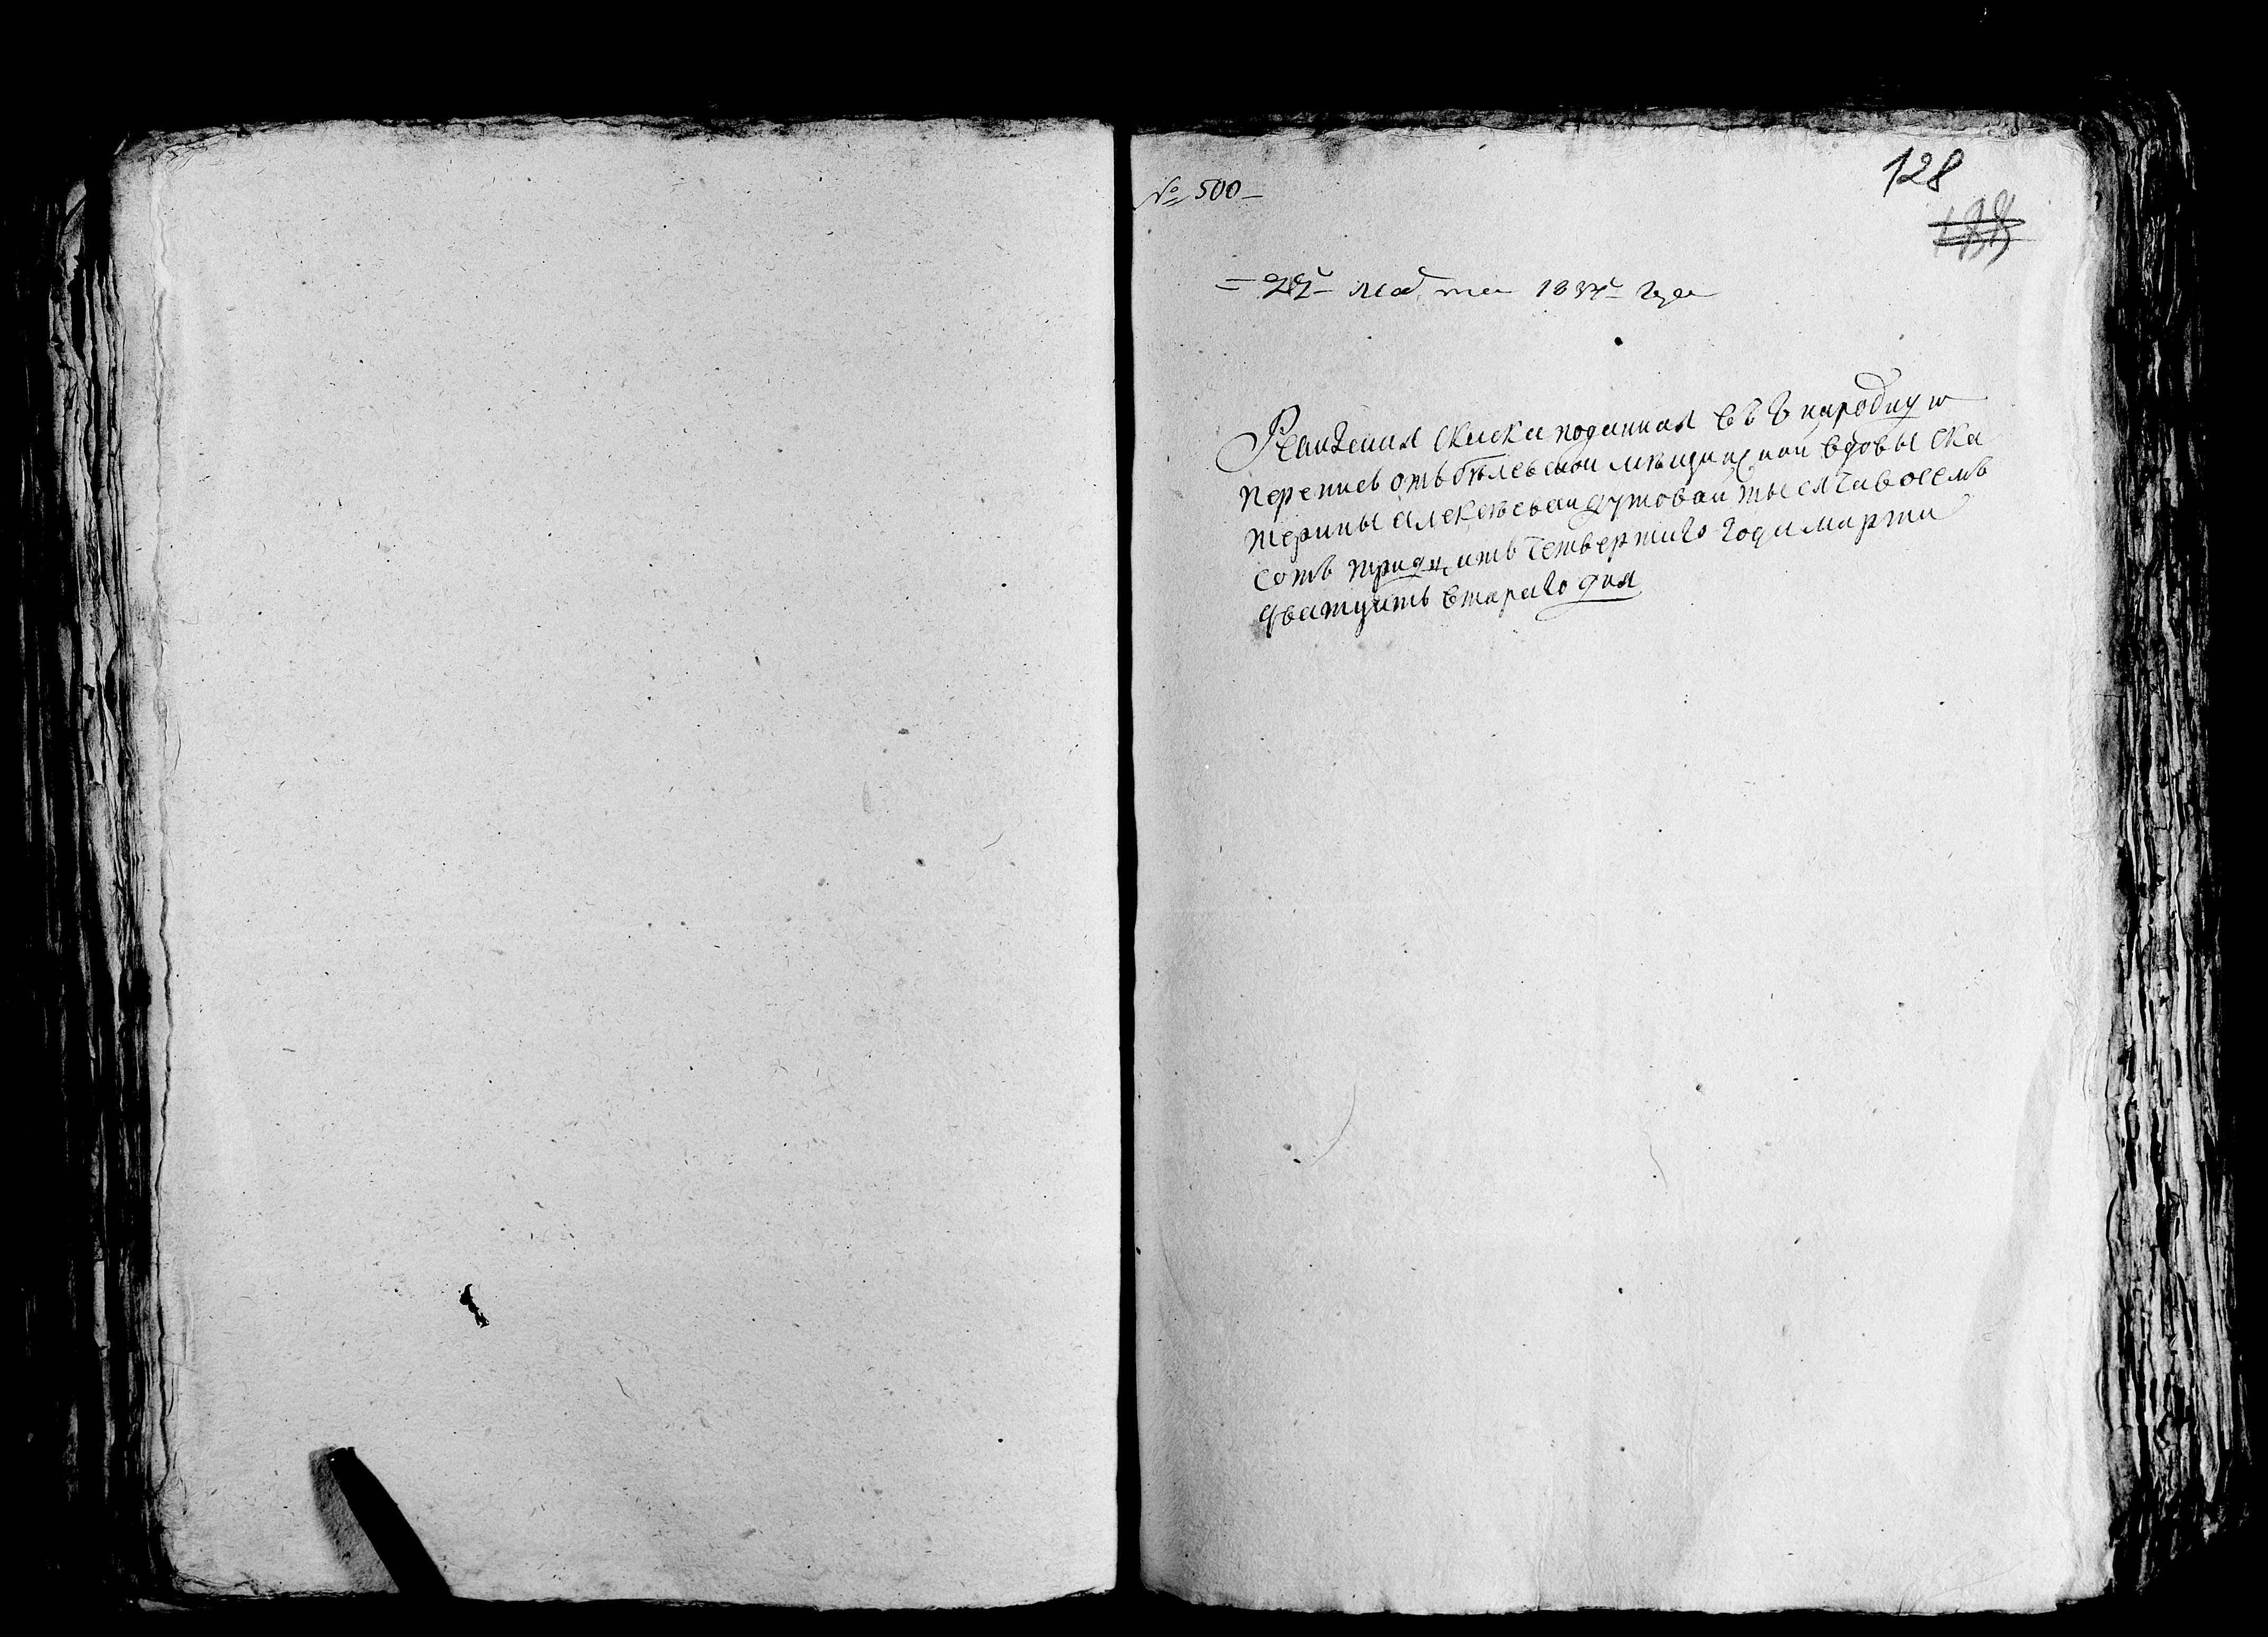 № 500
128
22 марта 1834 года
Ревизския скаска поданная въ 8 народную
перепись отъ бѣлевской мѣщанской вдовы Ека
терины алексѣевай дутовай тысяча восемь
сотъ тридцать четвертаго года марта
дватцать втараго дня